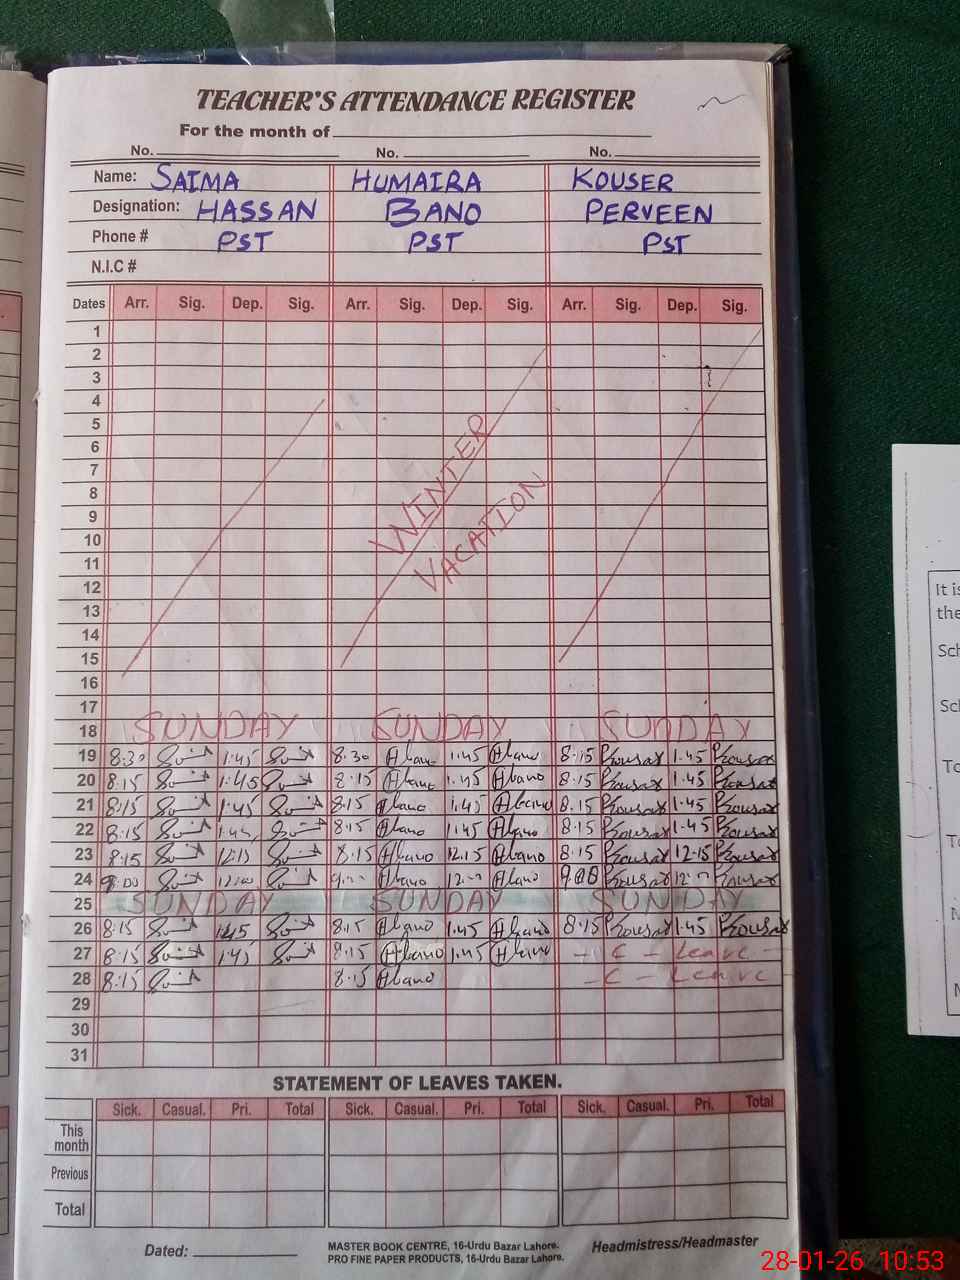 TEACHER'S ATTENDANCE REGISTER
For the month of
No. No. No.
Name: SAIMA HUMAIRA KOUSER
Designation: HASSAN BANO PERVEEN
Phone # PST PST PST
N.I.C #
Dates Arr. Sig. Dep. Sig. Arr. Sig. Dep. Sig. Arr. Sig. Dep. Sig.
1
2
3
4
5
6
7
8
9
10
11
12
13
14
15
16
WINTER
VACATION
17
18 SUNDAY SUNDAY SUNDAY
19 8:30 1:45 8:30 Hbano 1.45 Hbano 8:15 Pkousar 1.45 Pkousar
20 8:15 1:45 8:15 Hbano 1.45 Hbano 8:15 Pkousar 1.45 Pkousar
21 8:15 1:45 8:15 Hbano 1.45 Hbano 8.15 Pkousar 1.45 Pkousar
22 8:15 1:45 8:15 Hbano 1.45 Hbano 8:15 Pkousar 1.45 Pkousar
23 8:15 12:15 8:15 Hbano 12.15 Hbano 8:15 Pkousar 12.15 Pkousar
24 9:00 12:00 9:00 Hbano 12:00 Hbano 9.00 Pkousar 12:00 Pkousar
25 SUNDAY SUNDAY SUNDAY
26 8:15 1:45 8:15 Hbano 1.45 Hbano 8:15 Pkousar 1.45 Pkousar
27 8:15 1:45 8:15 Hbano 1.45 Hbano - C - Leave -
28 8:15 8:15 Hbano - C - Leave
29
30
31
STATEMENT OF LEAVES TAKEN.
Sick. Casual. Pri. Total Sick. Casual. Pri. Total Sick. Casual. Pri. Total
This
month
Previous
Total
Dated:
MASTER BOOK CENTRE, 16-Urdu Bazar Lahore.
PRO FINE PAPER PRODUCTS, 16-Urdu Bazar Lahore.
Headmistress/Headmaster
It is
the
28-01-26 10:53